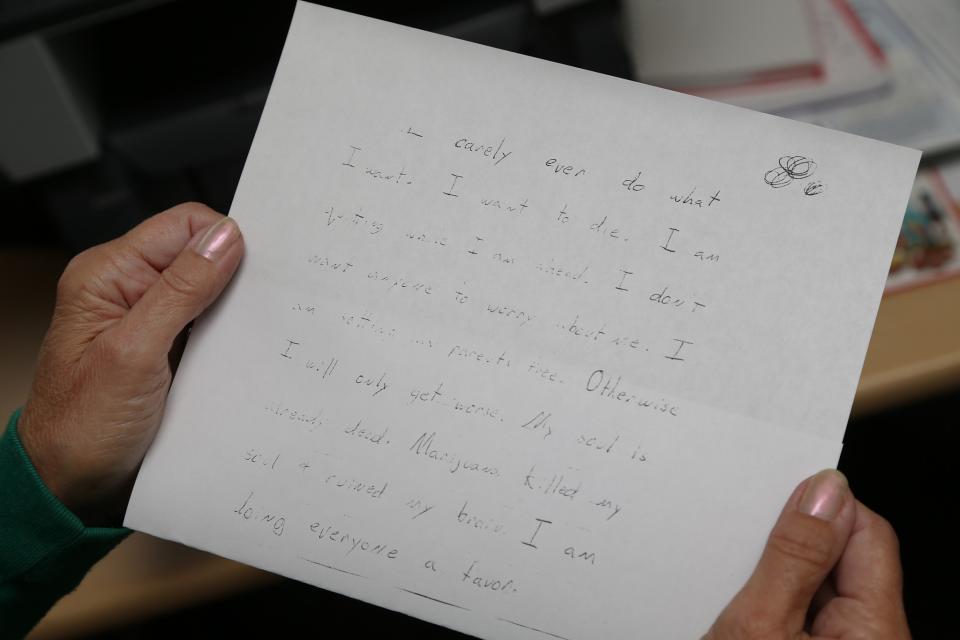 rarely ever do what
I want. I want to die. I am
quitting while I am ahead. I don't
want anyone to worry about me. I
am setting my parents free. Otherwise
I will only get worse. My soul is
already dead. Marijuana killed my
soul & ruined my brain. I am
doing everyone a favor.